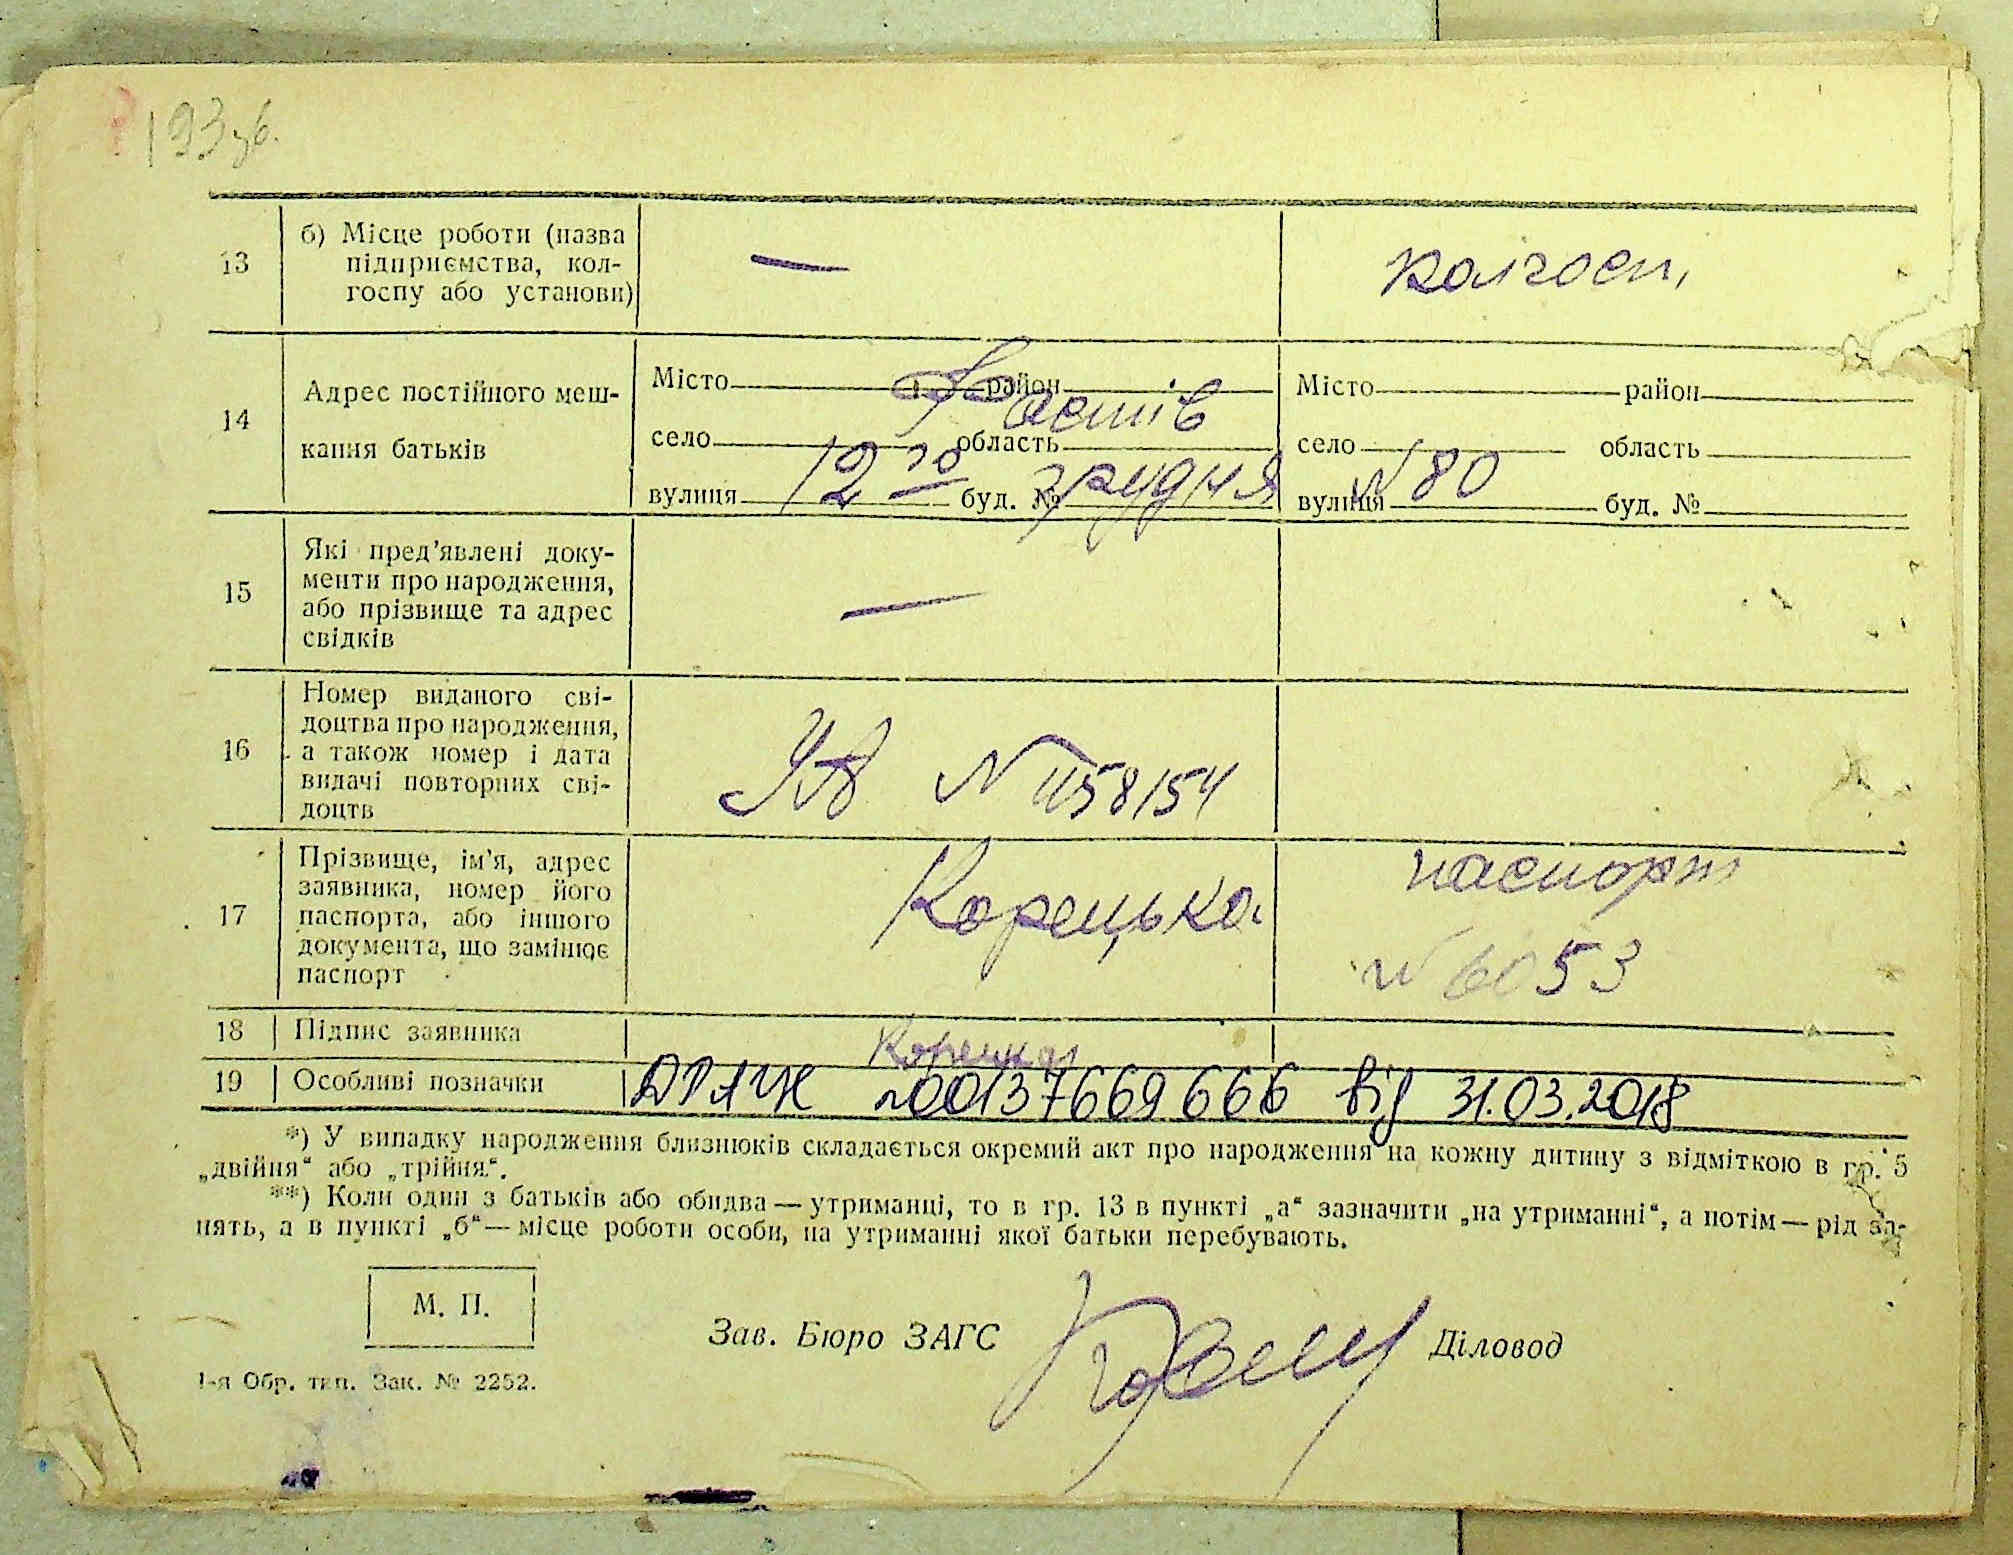 193 зв.
13
б) Місце роботи (назва
підприємства, кол-
госпу або установи)
—
колгосп,
14
Адрес постійного меш-
кання батьків
Місто район
Фастів
село область
вулиця 12го буд. № грудня
Місто район
село область
вулиця № 80 буд. №
15
Які пред'явлені доку-
менти про народження,
або прізвище та адрес
свідків
—
16
Номер виданого сві-
доцтва про народження,
а також номер і дата
видачі повторних сві-
доцтв
УА № 458154
17
Прізвище, ім'я, адрес
заявника, номер його
паспорта, або іншого
документа, що замінює
паспорт
Корецька
паспорт
№ 6053
18 Підпис заявника
Корецкая
19 Особливі позначки
ДРАЦС 00137669666 від 31.03.2018
*) У випадку народження близнюків складається окремий акт про народження на кожну дитину з відміткою в гр. 5
„двійня“ або „трійня“.
**) Коли один з батьків або обидва — утриманці, то в гр. 13 в пункті „а“ зазначити „на утриманні“, а потім — рід за-
нять, а в пункті „б“ — місце роботи особи, на утриманні якої батьки перебувають.
М. П.
Зав. Бюро ЗАГС
Діловод
1-я Обр. тип. Зак. № 2252.